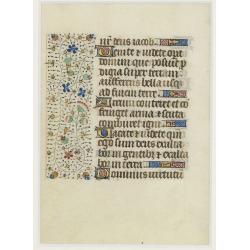 nr̄ deus iacob
Uenite & videte op̄a
domini que posuit p̄
digia super terram
aufferens bella usq̨
ad finem terre
Arcum conteret et co̅
fringet arma & scuta
comburet igni
Uacate & videte qm̄
ego sum deus exalta
bor in gentib; & exalta
bor in terra
Dominus virtutū